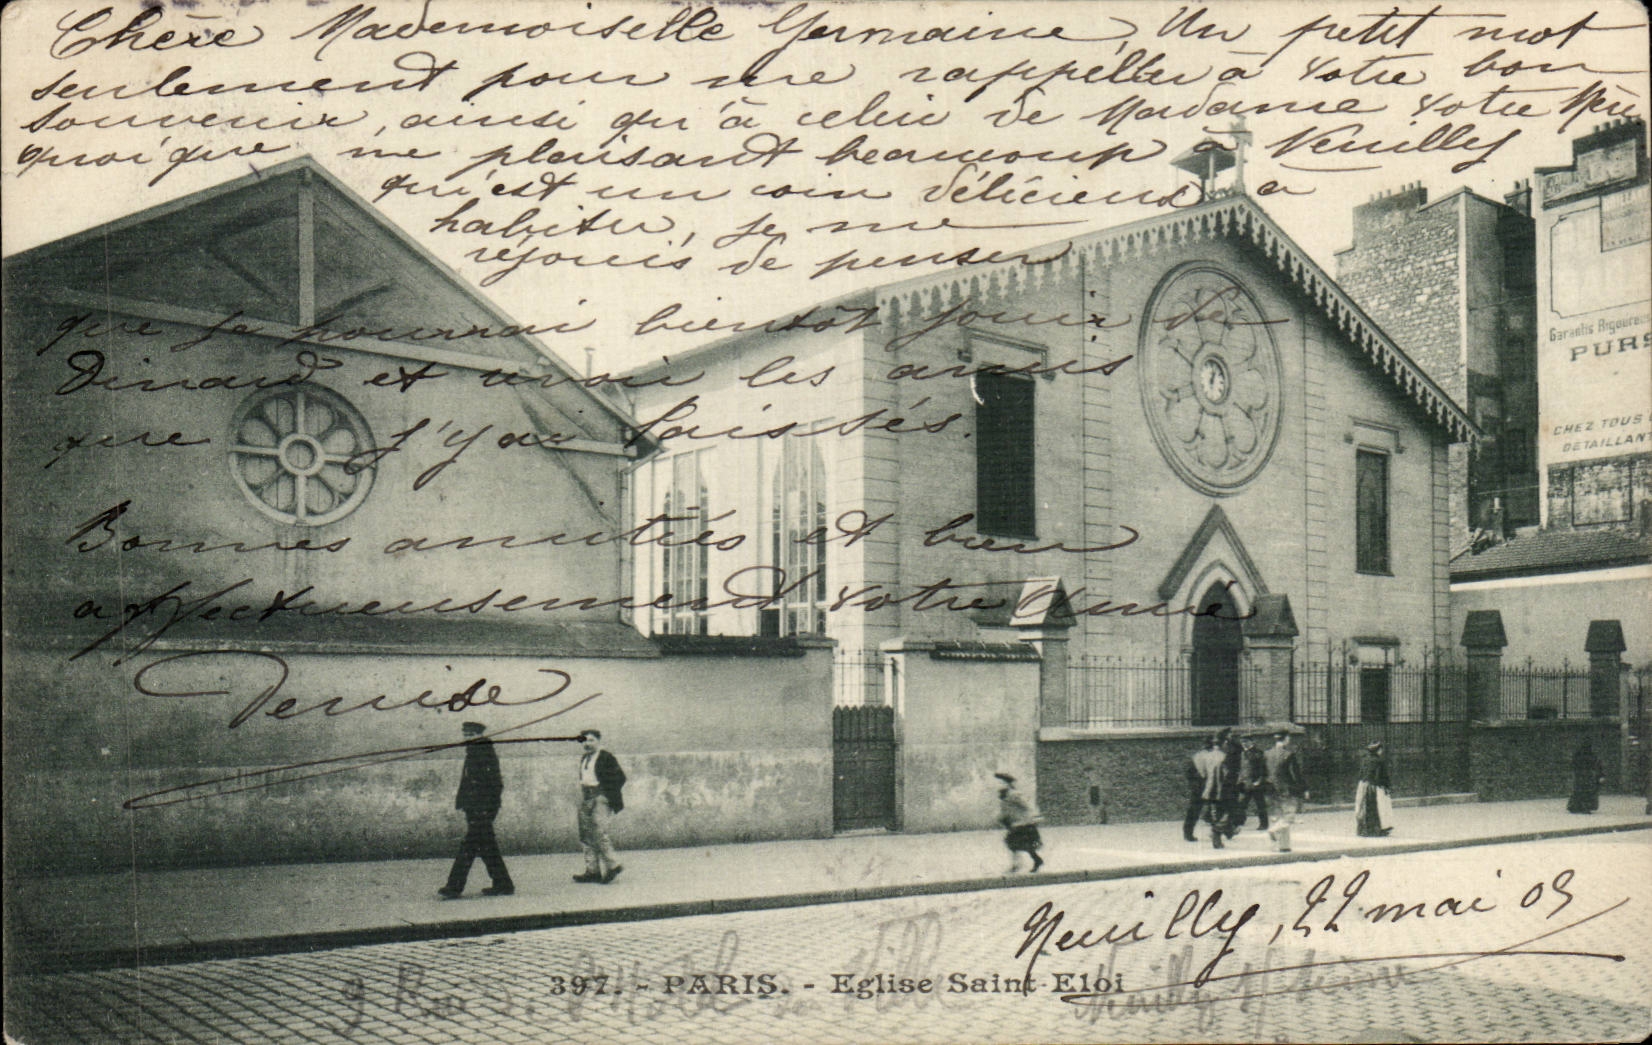 Chère Mademoiselle Germaine, Un petit mot
seulement pour me rappeller à votre bon
souvenir, ainsi qu'à celui de Madame votre Mère
quoi'que me plaisant beaucoup à Neuilly
qu'est un coin délicieux a
habiter, je me
réjouis de penser
que je pourrai bientôt jouir de
Dinard et revoir les amis
que j'y ai laissés.
Bonnes amitiés et bien
affectueusement votre Amie
Denise
Garantis Rigoureu
PURS
CHEZ TOUS
DETAILLANT
Neuilly, 22 mai 05
397. - PARIS. - Eglise Saint-Eloi
9 Rue de l'Hotel de Ville Neuilly s/ Seine